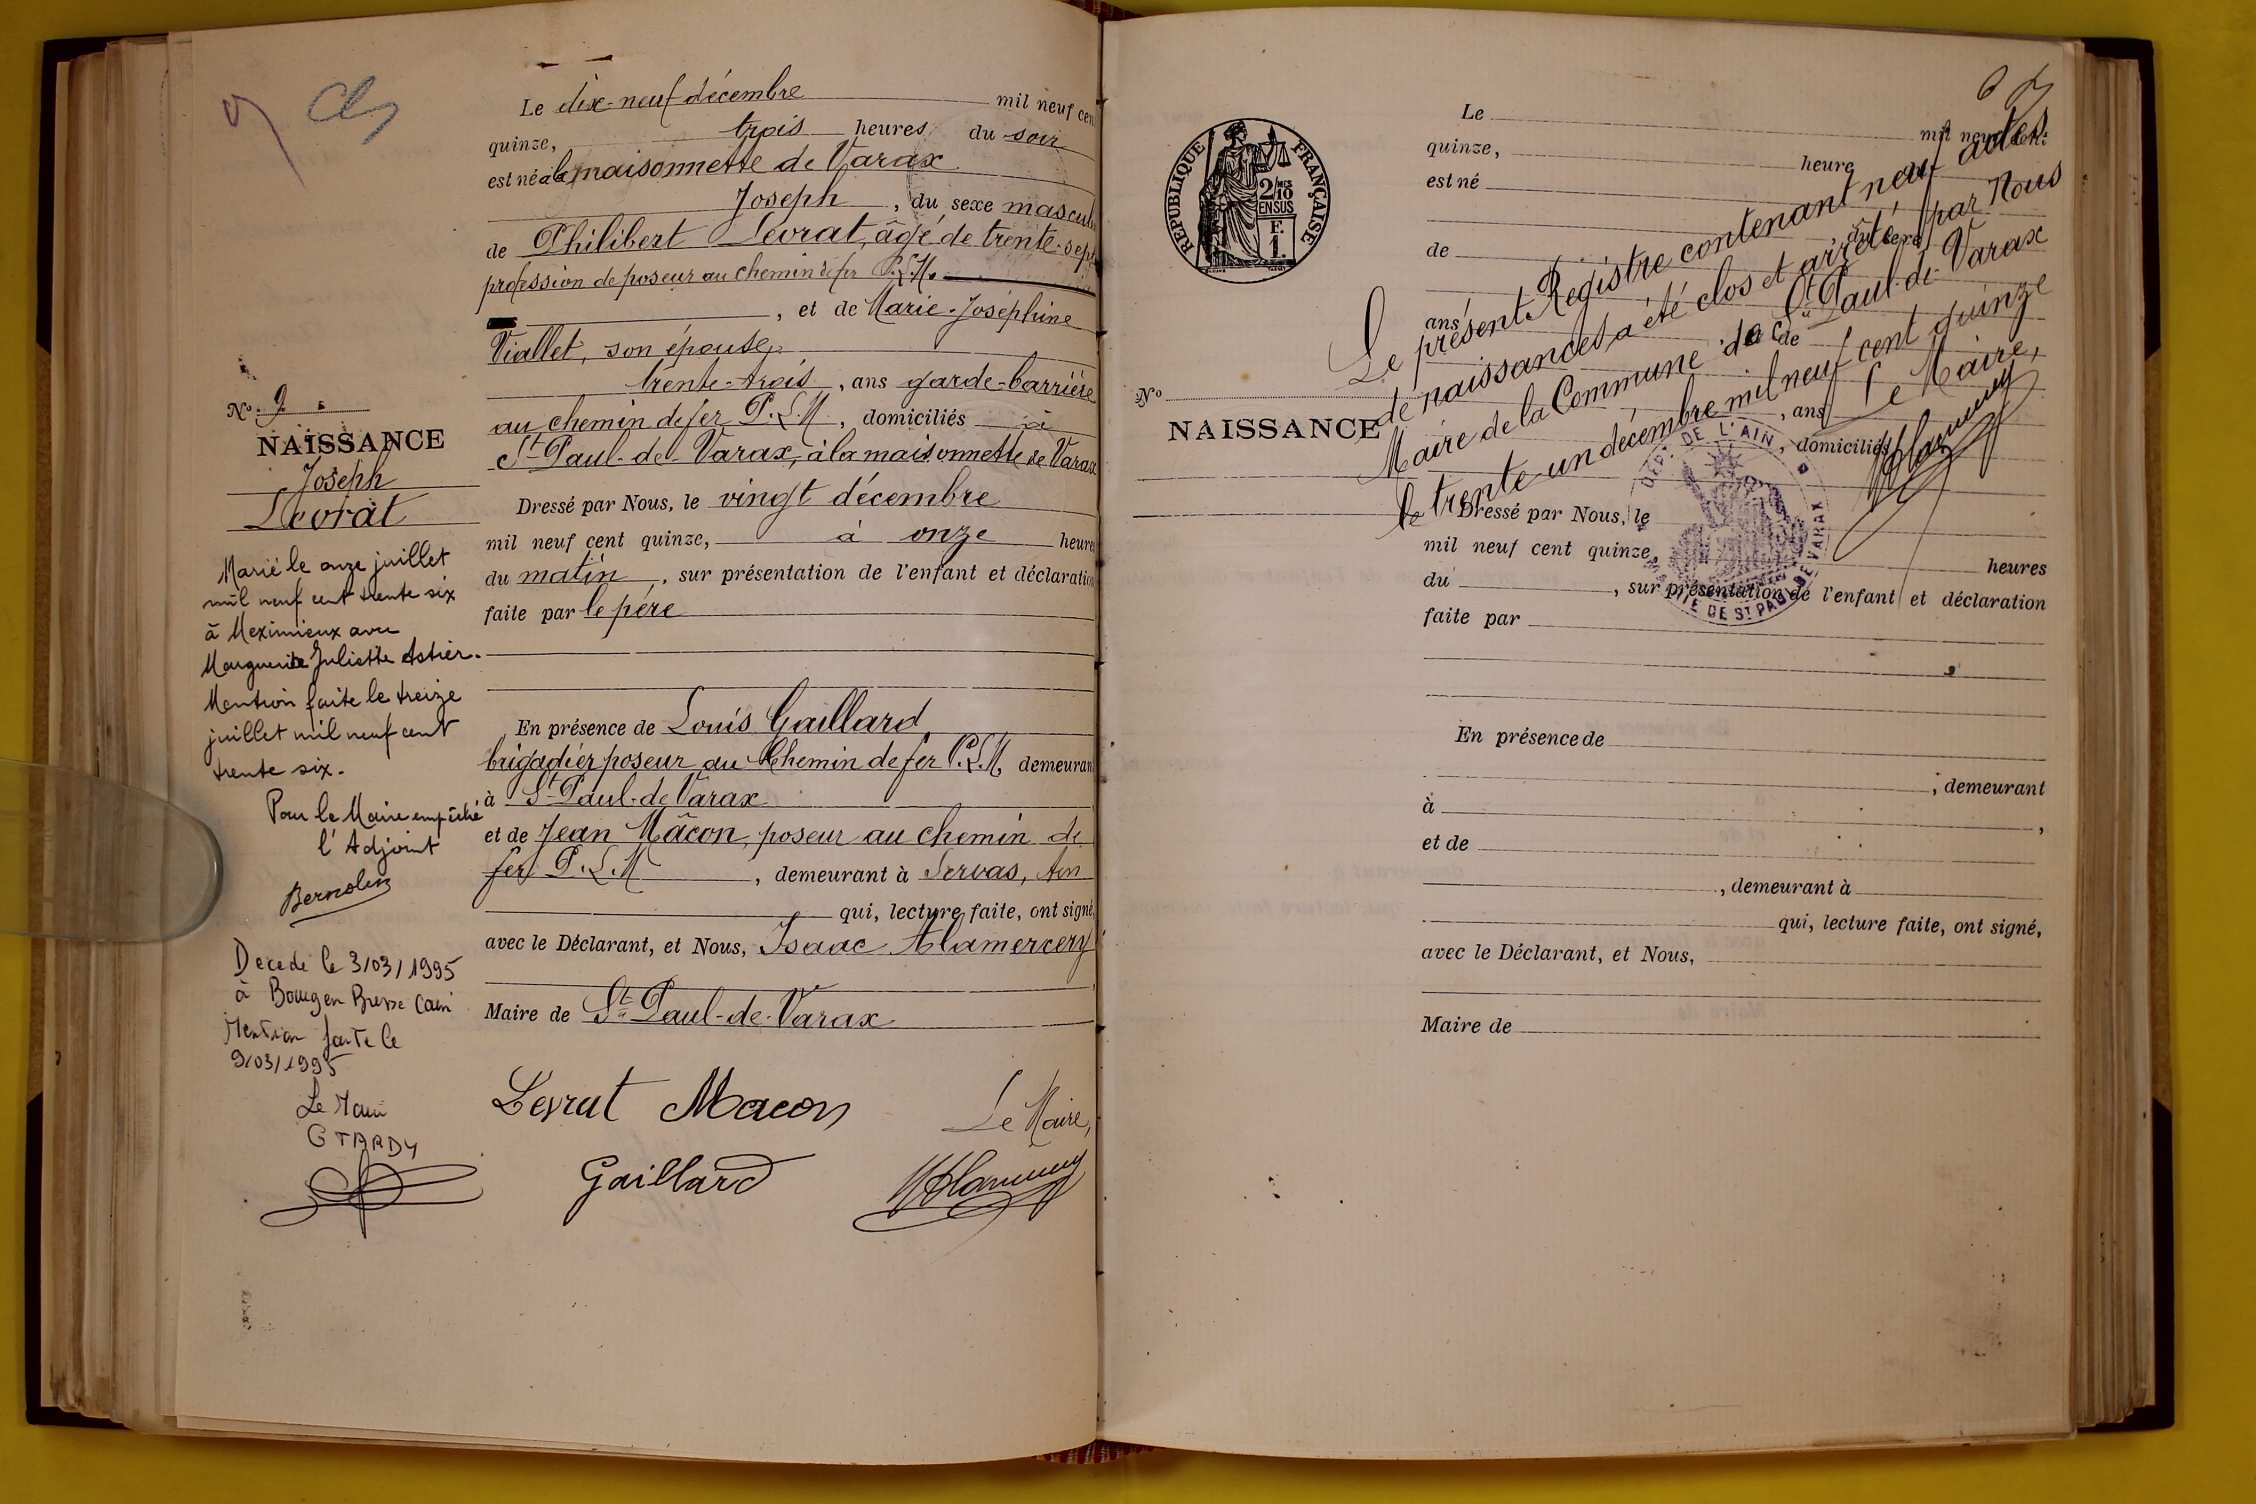 Le dix-neuf décembre mil neuf cen
quinze, trois heures du soir
est né à la maisonnette de Varax
Joseph, du sexe mascul
de Philibert Levrat, âgé de trente-sept
profession de poseur au chemin de fer P.L.M.
, et de Marie-Joséphine
Viallet, son épouse,
trente-trois, ans garde-barrière
au chemin de fer P.L.M, domiciliés à
St Paul-de-Varax, à la maisonnette de Varax
Dressé par Nous, le vingt décembre
mil neuf cent quinze, à onze heures
du matin, sur présentation de l'enfant et déclaration
faite par le père
En présence de Louis Gaillard
brigadier poseur au Chemin de fer P.L.M, demeuran
à St Paul-de Varax
et de Jean Mâcon, poseur au chemin de
fer P.L.M, demeurant à Servas, Ain
qui, lecture faite, ont signé,
avec le Déclarant, et Nous, Isaac Alamercery
Maire de St Paul-de-Varax
Levrat Macon
Le Maire,
Gaillard
No 9
NAISSANCE
Joseph
Levrat
Marié le onze juillet
mil neuf cent trente six
à Meximieux avec
Marguerite Juliette Astier.
Mention faite le treize
juillet mil neuf cent
trente six.
Pour le Maire empêché
l'Adjoint
Décédé le 3/03/1995
à Bourg en Bresse (Ain
Mention faite le
9/03/1995
Le Maire
G TARDY
REPUBLIQUE FRANÇAISE
2/10 MES
EN SUS
F.
1.
No
NAISSANCE
Le mil neuf cent
quinze, heure
est né
de
ans
, ans
, domiciliés
Dressé par Nous, le
mil neuf cent quinze, heures
du , sur présentation de l'enfant et déclaration
faite par
En présence de
, demeurant
à ,
et de
, demeurant à
qui, lecture faite, ont signé,
avec le Déclarant, et Nous,
Maire de
Le présent Registre contenant neuf actes
de naissances a été clos et arrêté par Nous
Maire de la Commune de St Paul-de-Varax
le trente un décembre mil neuf cent quinze
Le Maire,
DEP. DE L'AIN
MAIRIE DE ST PAUL DE VARAX